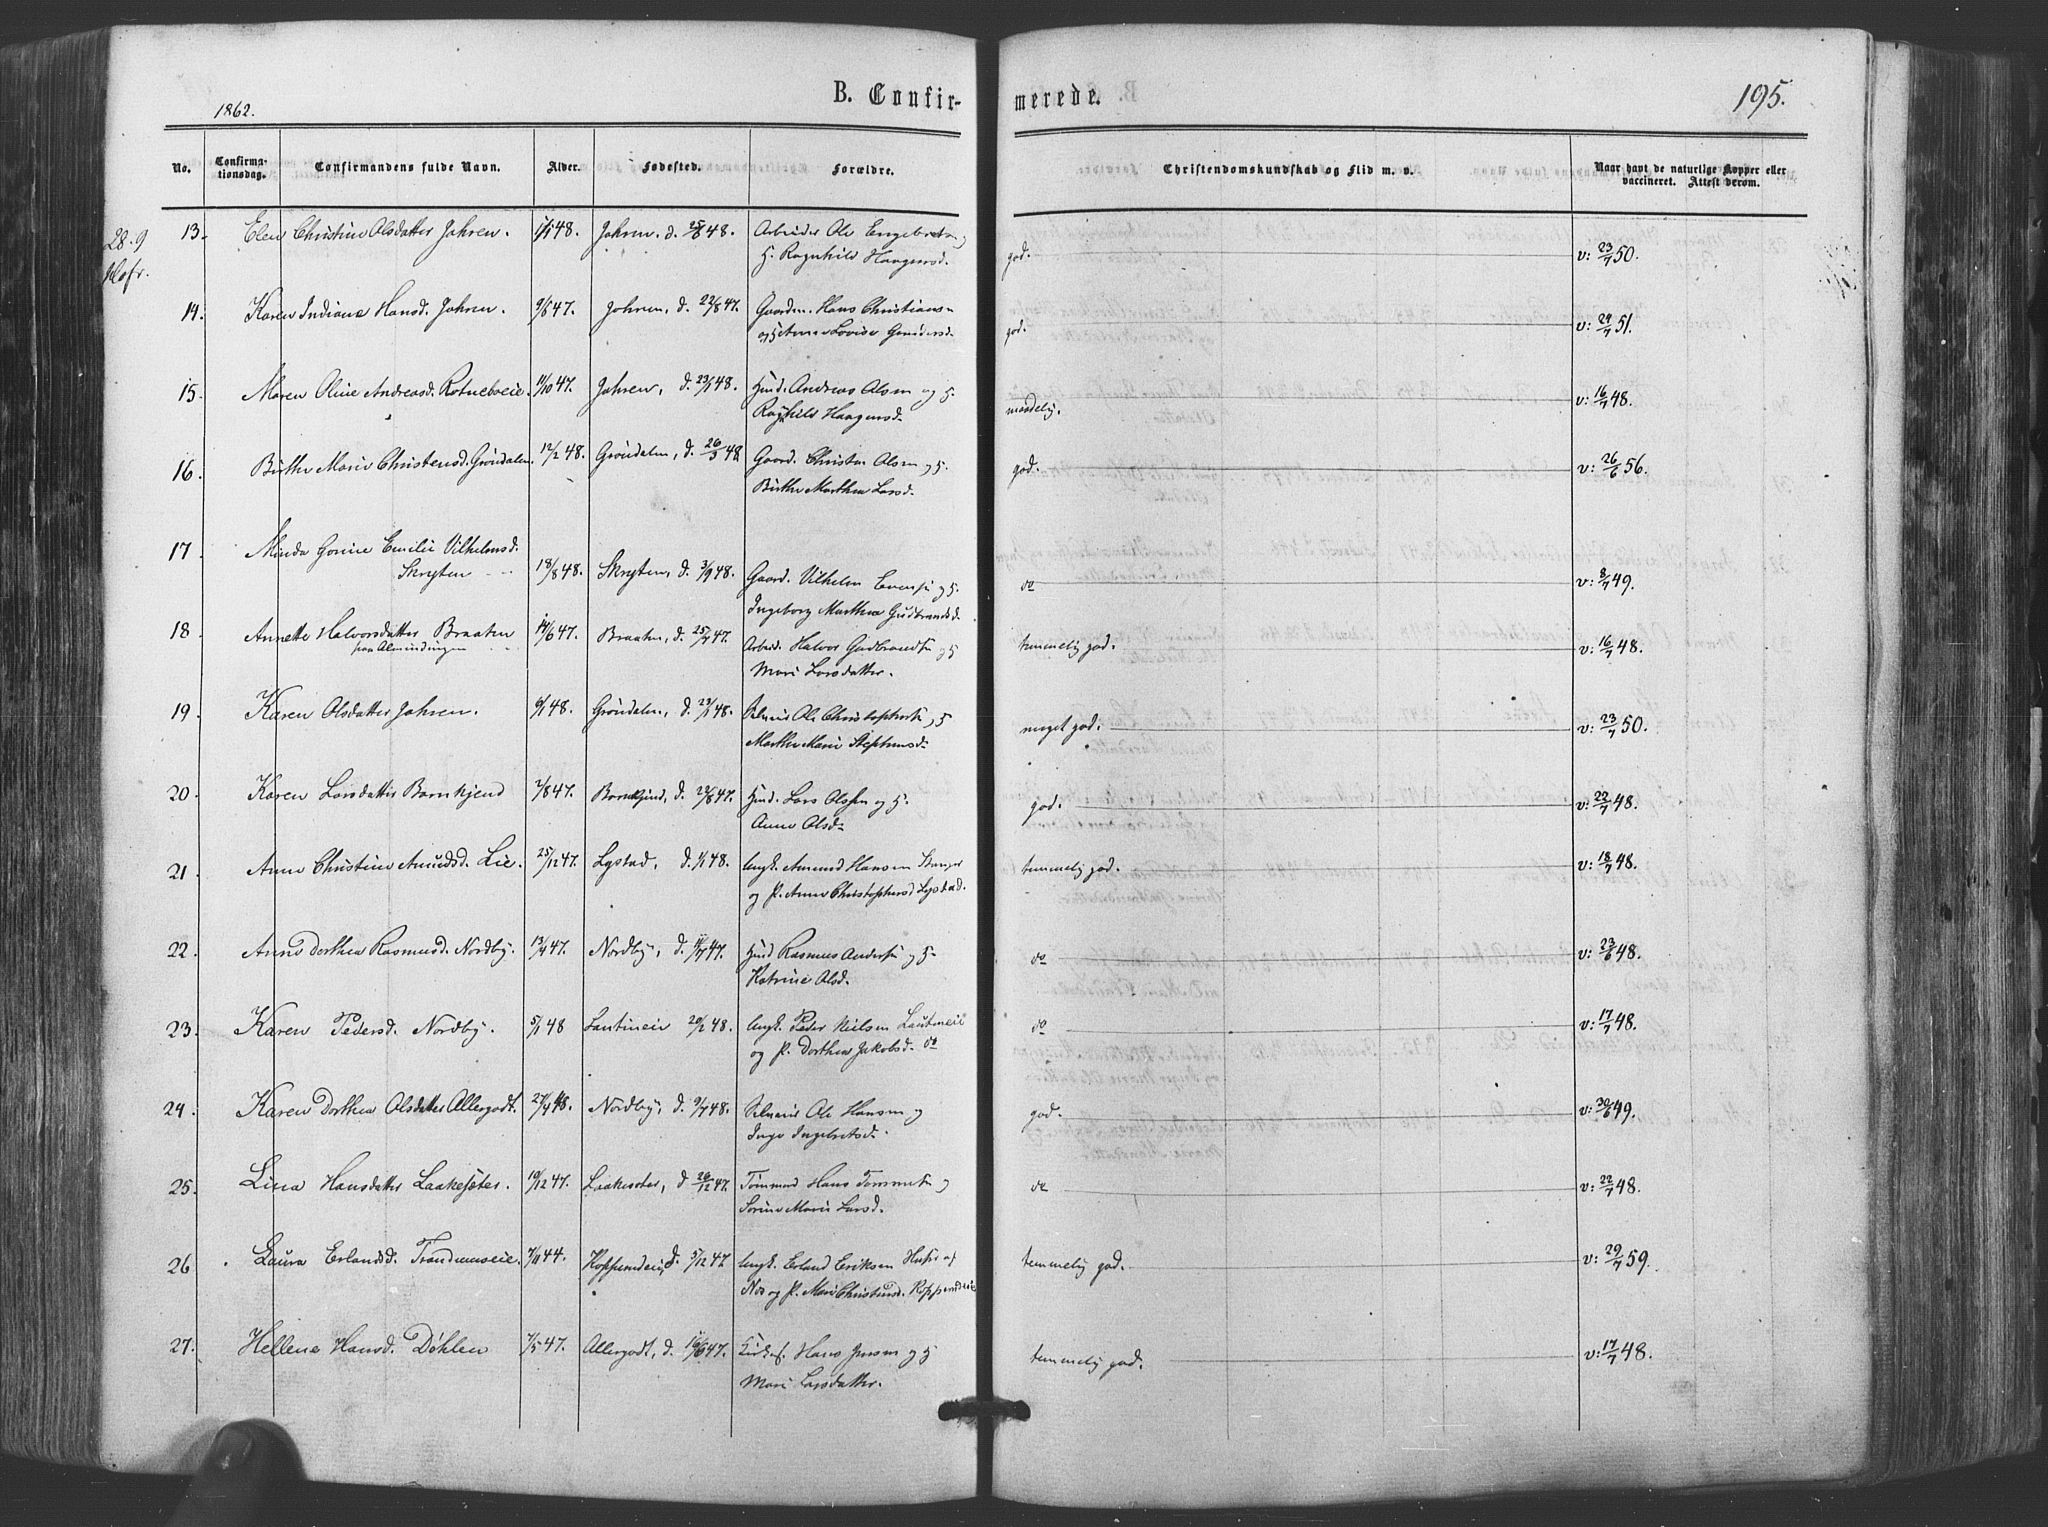 1862.
B. Confir-
merede.
195.
No.
Confirma-
tionsdag.
Confirmandens fulde Navn.
Alder.
Fødested.
Forældre.
Christendomskundskab og Flid m. v.
Naar havt de naturlige Kopper eller
vaccineret. Attest derom.
28.9
13. Elen Christine Olsdatter Johren. 1/1 48. Johren. d. 25/6 48. Arbeider Ole Engebretsen og
H. Ragnhild Haagensd. god. v: 23/7 50.
14. Karen Indiane Hansd. Johren. 9/6 47. Johren, d. 22/8 47. Gaardm. Hans Christiansen
og H. Anne Lovise god. v: 29/7 51.
15. Maren Oline Andreasd. Rotneboeie. 11/10 47. Johren, d. 23/1 48. Huud. Andreas Olsen og H.
Ragnhild Haagensd. maadelig. v: 16/7 48.
16. Birthe Marie Christensd. Gröndalen. 12/2 48. Gröndalen, d. 26/3 48. Gaard. Christen Olsen og H.
Birthe Marthea Larsd. god. v: 26/6 56.
17. Minda Gorine Emilie Vilhelmsd.
Skryten 18/8 48. Skryten, d. 3/9 48. Gaard. Vilhelm Evensen og H.
Ingeborg Marthea Gudbrandsd. do v: 8/7 49.
18. Annette Halvorsdatter Braaten
paa Almindingen 14/6 47. Braaten, d. 25/7 47. Arbeid. Halvor Gudbrandsen og H
Mari Larsdatter. temmelig god. v: 16/7 48.
19. Karen Olsdatter Johren. 6/1 48. Gröndalen, d. 23/1 48. Selveier Ole Christophersen og H
Marthe Marie Stephensd. meget god. v: 23/7 50.
20. Karen Larsdatter Barnkjend 7/8 47. Barnkjend, d. 29/8 47. Huud. Lars Olssen og H.
Anne Olsd. god. v: 22/7 48.
21. Anne Christine Amudsd. Lie. 25/12 47. Lystad, d. 1/1 48. Ungk. Amund Hansen Stanger
og P. Anne Christophersd. Lystad. temmelig god. v: 18/7 48.
22. Anne Dorthea Rasmusd. Nordby. 13/4 47. Nordby, d. 11/7 47. Huud Rasmus Andersen og H.
Katrine Olsd. do v: 23/6 48.
23. Karen Pedersd. Nordby. 5/1 48 Lautineie 20/2 48. Ungk. Peder Nielsen Lautineie
og P. Dorthea Jakobsd. do do v: 17/7 48.
24. Karen Dorthea Olsdatter Allergodt. 27/4 48. Nordby, d. 9/7 48. Selveier Ole Hansen og
Inge Ingebretsd. god. v: 30/6 49.
25. Lina Hansdatter Laakesöter. 10/12 47. Laakesöter, d 26/12 47. Tömmermd Hans Tommesen og
Sorine Marie Larsd. do v: 22/7 48.
26 Laura Erlandsd. Trandumseie. 7/11 44. Koppendeie, d. 5/12 47. Ungk. Erland Eriksen
og P. Mari Christensd. Koppendeie temmelig god. v: 29/7 59.
27. Hellene Hansd. Döhlen 7/5 47. Allergodt, d. 16/6 47. Hans Jensen og H
Mari Larsdatter. temmelig god. v: 17/7 48.